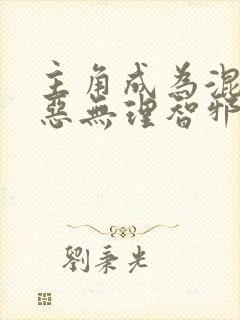 主角成為混
惡無理智邪
劉秉光